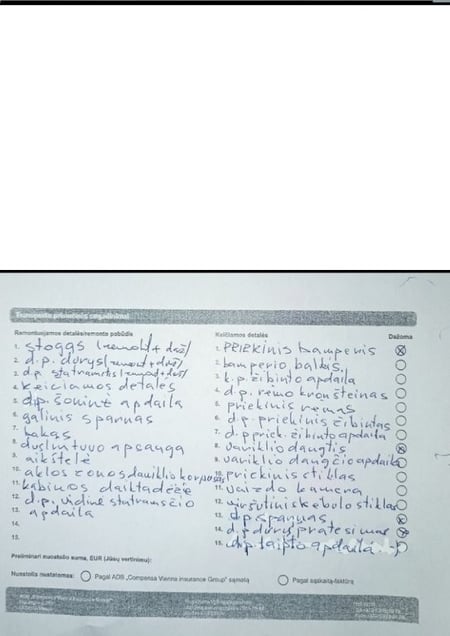 Transporto priemonės sugadinimai
Remontuojamos detalės/remonto pobūdis
1. stogas (remont+daž)
2. d.p. durys (remont+daž)
3. d.p. statramstis (remont+daž)
4. keičiamos detalės
5. d.p. šoninė apdaila
6. galinis sparnas
7. bakas
8. duslintuvo apsauga
9. aikštelė
10. aklos zonos daviklio korpusas
11. kabinos daiktadėžė
12. d.p. vidinė statramsčio
13. apdaila
14.
15.
Keičiamos detalės Dažoma
1. priekinis bamperis
2. bamperio balkis
3. k.p. žibinto apdaila
4. d.p. rėmo kronšteinas
5. priekinis rėmas
6. d.p. priekinis žibintas
7. d.p. priek. žibinto apdaila
8. variklio dangtis
9. variklio dangčio apdaila
10. priekinis stiklas
11. vaizdo kamera
12. viršutinis kėbulo stiklas
13. d.p. sparnas
14. d.p. durų pratęsimas
15. d.p. laipto apdaila
Preliminari nuostolio suma, EUR (Jūsų vertinimu):
Nuostolis nustatomas: Pagal ADB „Compensa Vienna Insurance Group" sąmatą Pagal sąskaitą-faktūrą